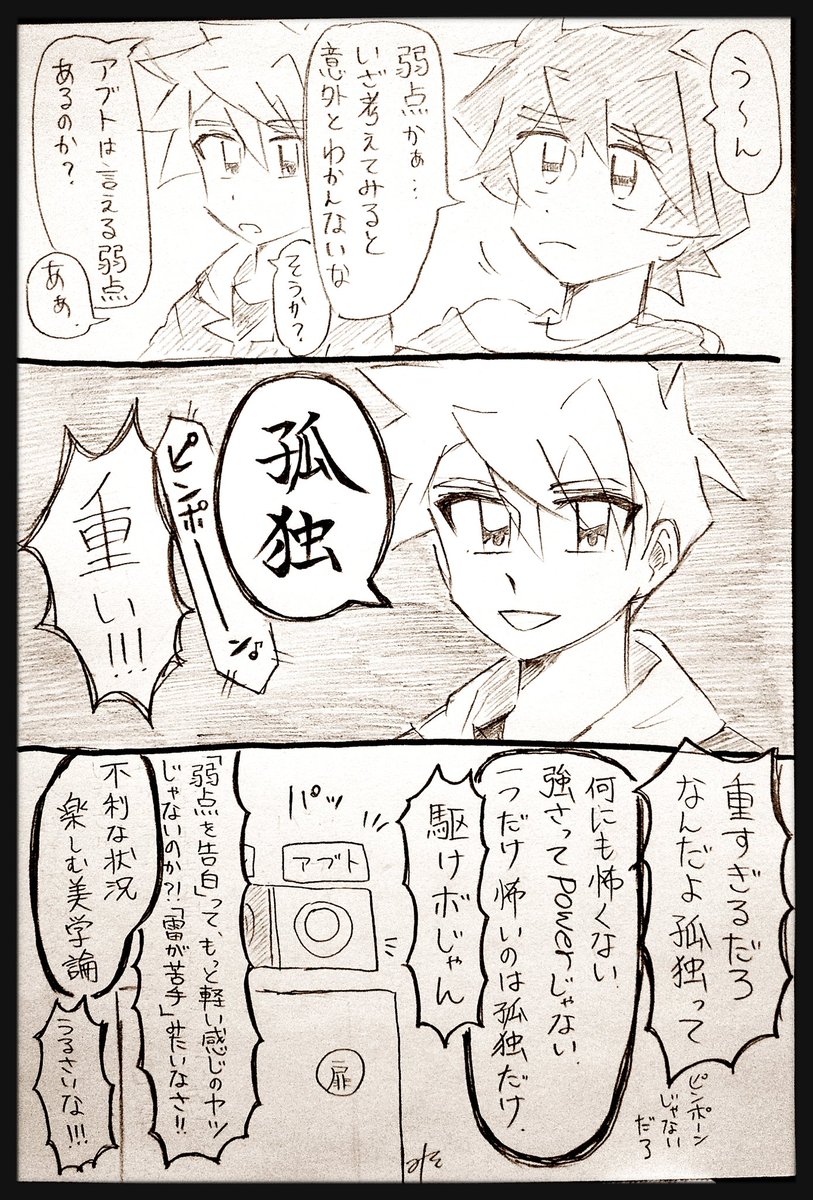 う〜ん
弱点かぁ…
いざ考えてみると
意外とわかんないな
そうか?
アブトは言える弱点
あるのか?
あぁ.
孤独
ピンポーン♪
重い!!!
重すぎるだろ
なんだよ孤独って
ピンポーン
じゃない
だろ
何にも怖くない.
強さってPowerじゃない.
一つだけ怖いのは孤独だけ.
駆けボじゃん
パッ
アブト
扉
「弱点を告白」って、もっと軽い感じのヤツ
じゃないのか?!「雷が苦手」みたいなさ!!
不利な状況
楽しむ美学論
うるさいな!!!